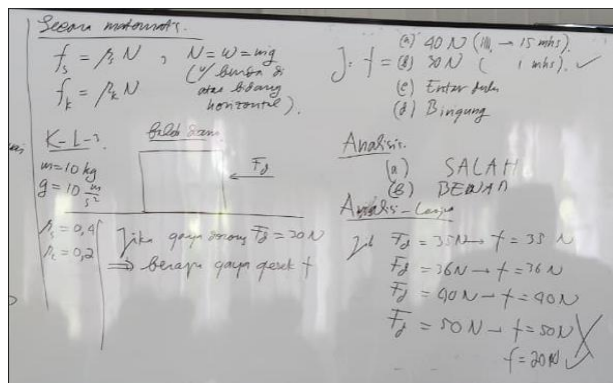 Secara matematis.
f_s = μ_s N , N = w = mg
f_k = μ_k N (u/ benda di
atas bidang
horizontal).
K-L-3
balok diam
m = 10 kg
g = 10 m/s²
F_d
μ_s = 0,4
μ_k = 0,2
Jika gaya dorong F_d = 30 N
⇒ berapa gaya gesek f
J: f =
(a) 40 N ( → 15 mhs).
(b) 30 N ( 1 mhs). ✓
(c) Entar dulu
(d) Bingung
Analisis.
(a) SALAH
(b) BENAR
Analisis-Lanjut
Jika F_d = 35 N → f = 35 N
F_d = 36 N → f = 36 N
F_d = 40 N → f = 40 N
F_d = 50 N → f = 50 N
f = 20 N ✓